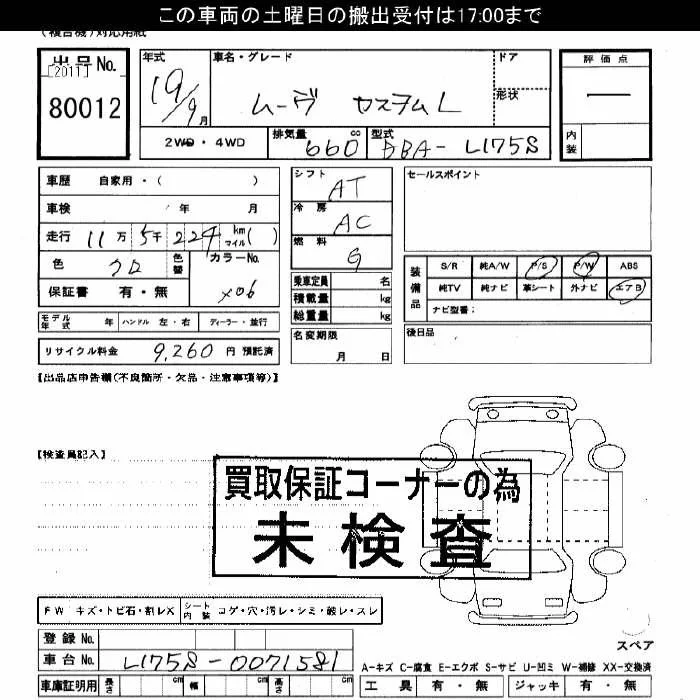 この車両の土曜日の搬出受付は17:00まで
(複合機)対応用紙
出品No.
[2011]
80012
年式
19/9月
車名・グレード
ムーヴ カスタムL
ドア
形状
評価点
内装
2WD・4WD
排気量 660 cc
型式 DBA-L175S
車歴 自家用・( )
車検 年 月
走行 11万5千224 km マイル( )
色 クロ
色替
カラーNo. X06
保証書 有・無
シフト AT
冷房 AC
燃料 G
乗車定員 名
積載量 kg
総重量 kg
セールスポイント
装備品
S/R 純A/W P/S P/W ABS
純TV 純ナビ 革シート 外ナビ エアB
ナビ型番:
モデル年式 年 ハンドル 左・右 ディーラー・並行
リサイクル料金 9,260 円 預託済
名変期限 月 日
後日品
【出品店申告欄(不良箇所・欠品・注意事項等)】
【検査員記入】
買取保証コーナーの為
未検査
FW キズ・トビ石・割レX
シート内装 コゲ・穴・汚レ・シミ・破レ・スレ
登録No.
車台No. L175S-0071581
車庫証明用 長さ cm 幅 cm 高さ cm
スペア
A-キズ C-腐食 E-エクボ S-サビ U-凹ミ W-補修 XX-交換済
工具 有・無 ジャッキ 有・無